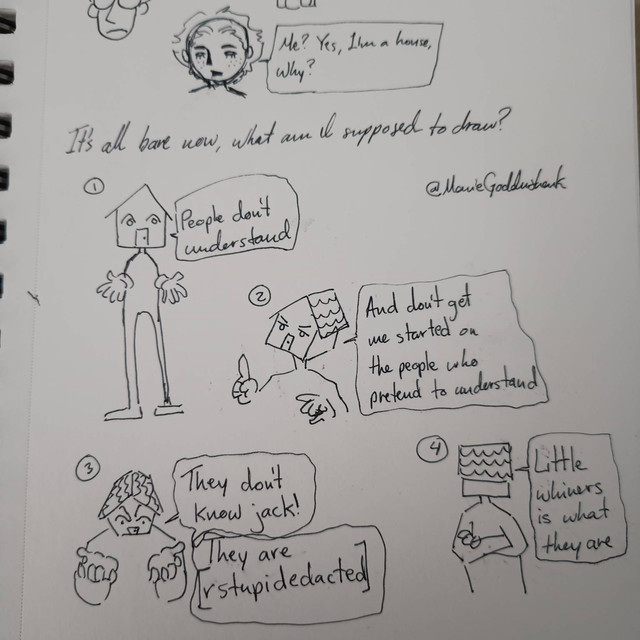 Me? Yes, I'm a house,
Why?
It's all bare now, what am I supposed to draw?
1
People don't
understand
2
And don't get
me started on
the people who
pretend to understand
3
They don't
know jack!
They are
[rstupidedacted]
4
Little
whiners
is what
they are